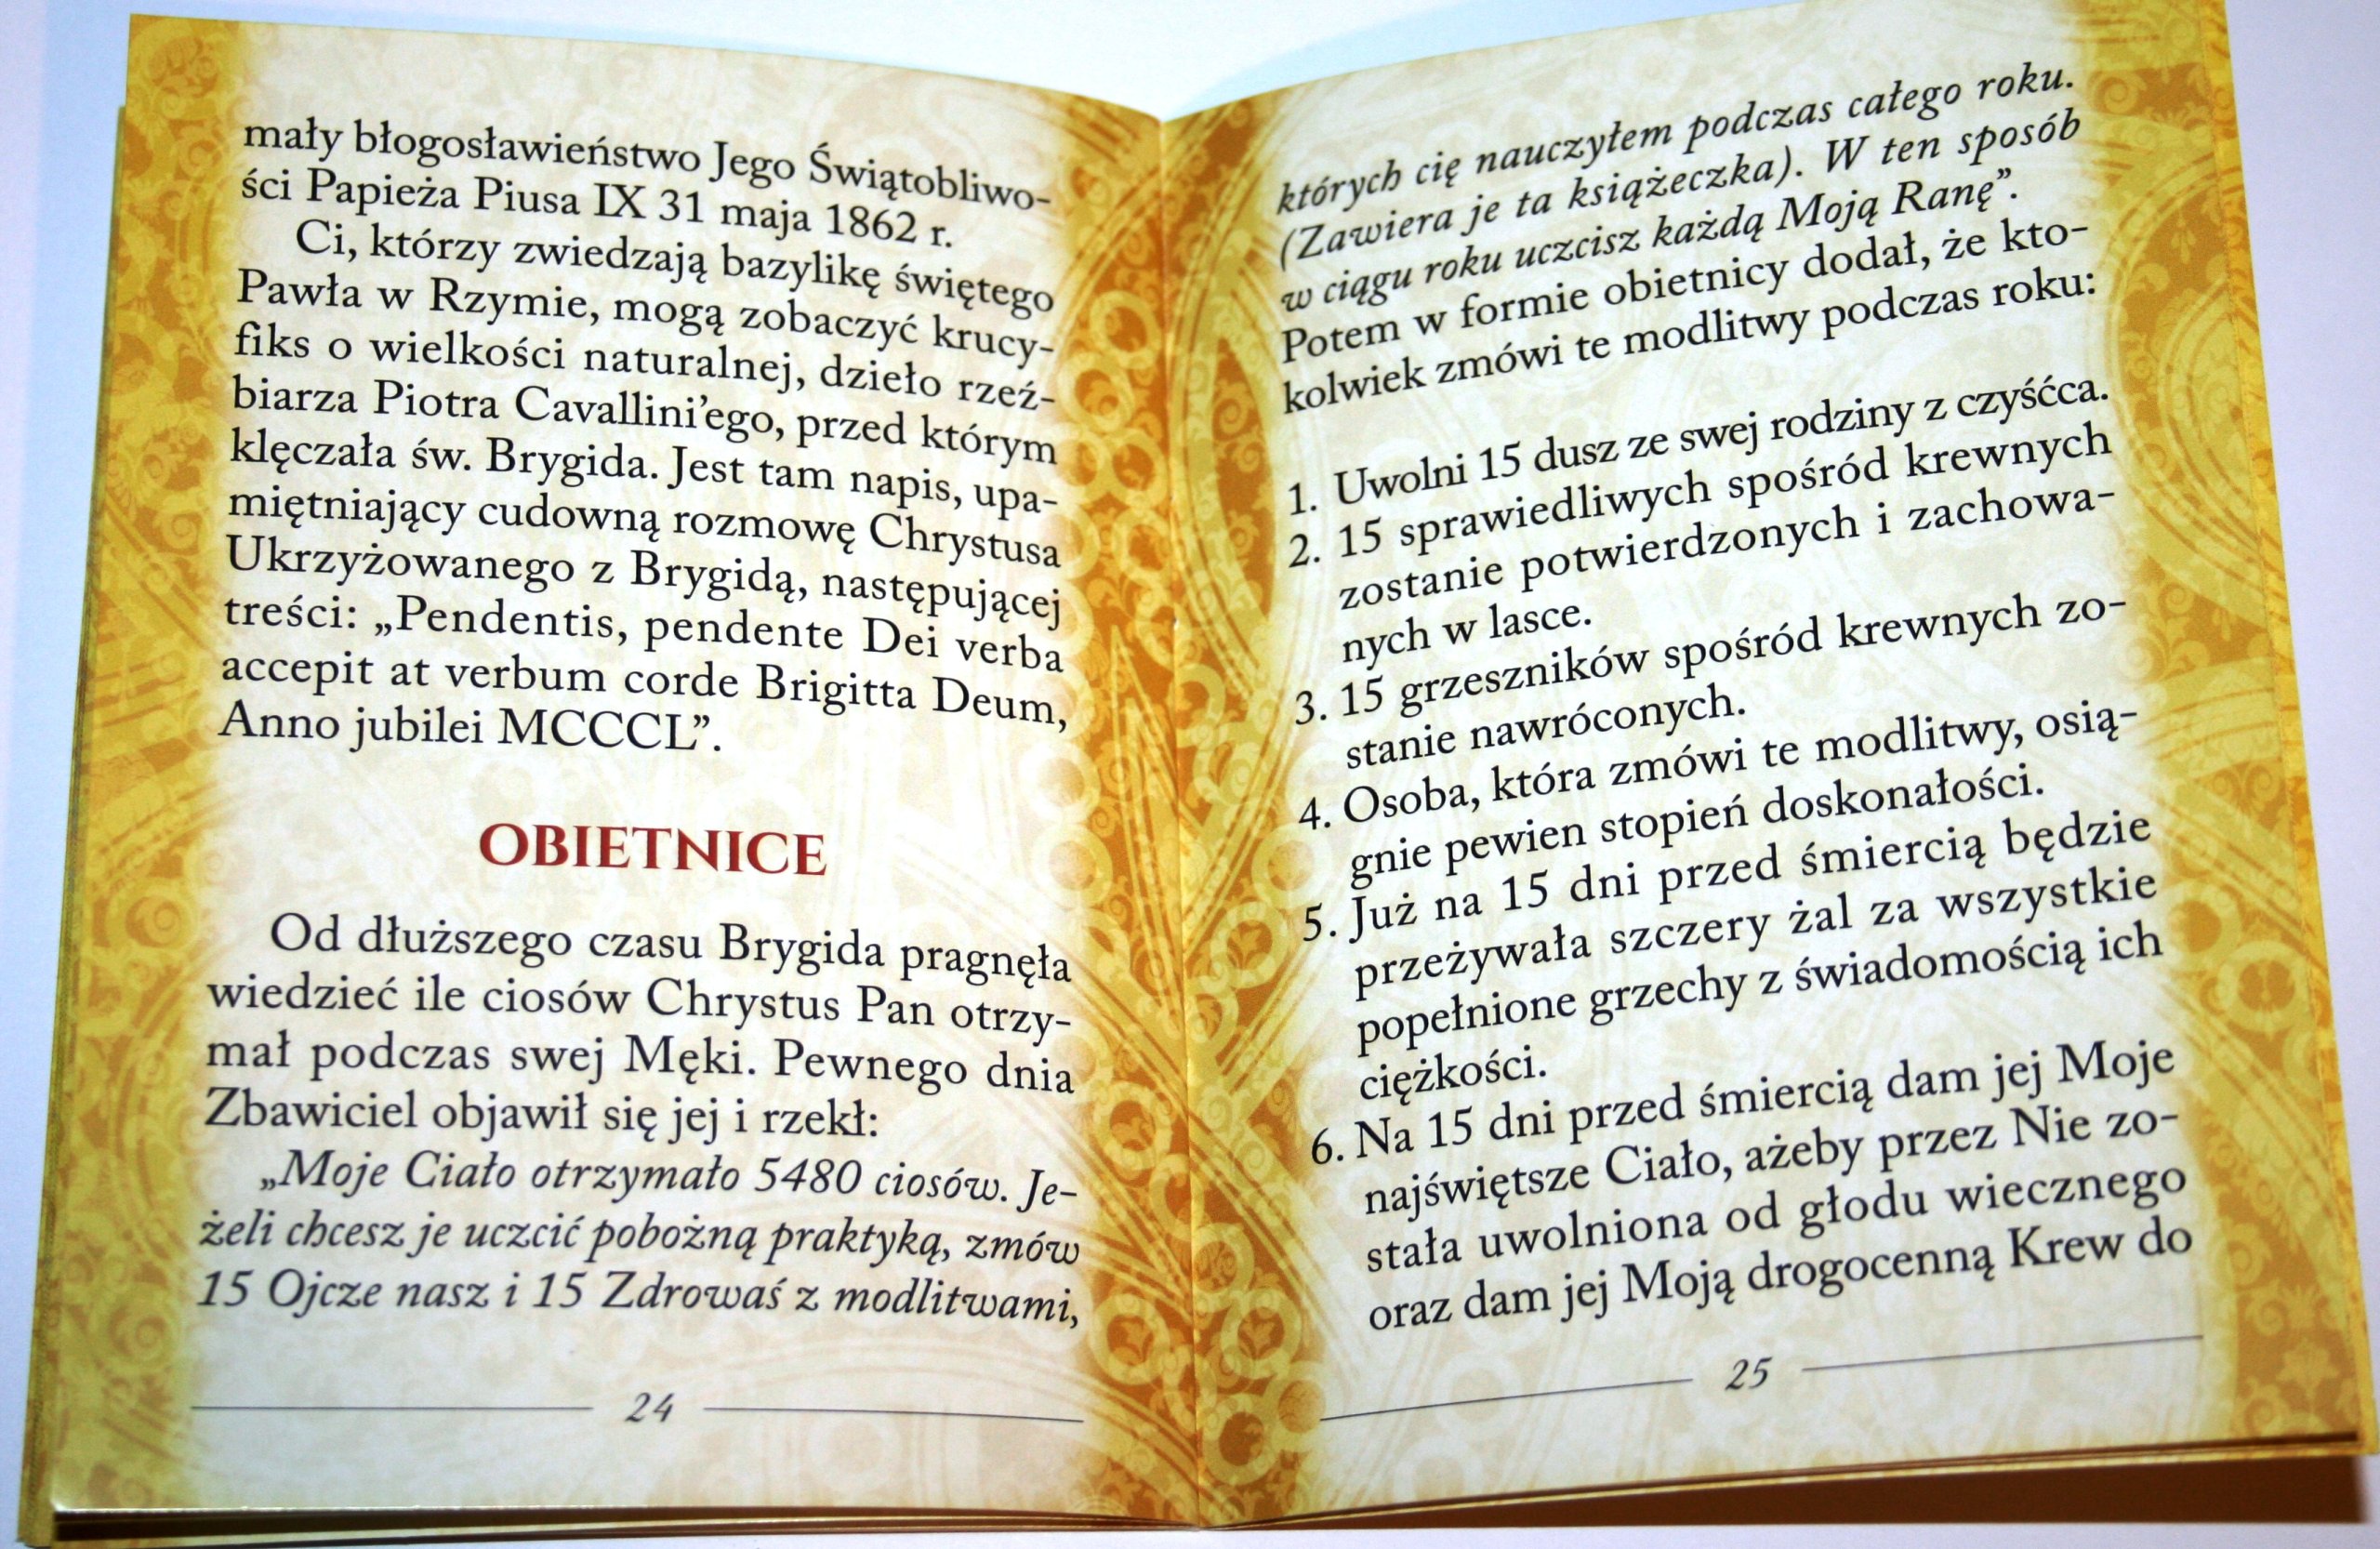 mały błogosławieństwo Jego Świątobliwo-
ści Papieża Piusa IX 31 maja 1862 r.
Ci, którzy zwiedzają bazylikę świętego
Pawła w Rzymie, mogą zobaczyć krucy-
fiks o wielkości naturalnej, dzieło rzeź-
biarza Piotra Cavallini’ego, przed którym
klęczała św. Brygida. Jest tam napis, upa-
miętniający cudowną rozmowę Chrystusa
Ukrzyżowanego z Brygidą, następującej
treści: „Pendentis, pendente Dei verba
accepit at verbum corde Brigitta Deum,
Anno jubilei MCCCL”.
OBIETNICE
Od dłuższego czasu Brygida pragnęła
wiedzieć ile ciosów Chrystus Pan otrzy-
mał podczas swej Męki. Pewnego dnia
Zbawiciel objawił się jej i rzekł:
„Moje Ciało otrzymało 5480 ciosów. Je-
żeli chcesz je uczcić pobożną praktyką, zmów
15 Ojcze nasz i 15 Zdrowaś z modlitwami,
24
których cię nauczyłem podczas całego roku.
(Zawiera je ta książeczka). W ten sposób
w ciągu roku uczcisz każdą Moją Ranę”.
Potem w formie obietnicy dodał, że kto-
kolwiek zmówi te modlitwy podczas roku:
1. Uwolni 15 dusz ze swej rodziny z czyśćca.
2. 15 sprawiedliwych spośród krewnych
zostanie potwierdzonych i zachowa-
nych w lasce.
3. 15 grzeszników spośród krewnych zo-
stanie nawróconych.
4. Osoba, która zmówi te modlitwy, osią-
gnie pewien stopień doskonałości.
5. Już na 15 dni przed śmiercią będzie
przeżywała szczery żal za wszystkie
popełnione grzechy z świadomością ich
ciężkości.
6. Na 15 dni przed śmiercią dam jej Moje
najświętsze Ciało, ażeby przez Nie zo-
stała uwolniona od głodu wiecznego
oraz dam jej Moją drogocenną Krew do
25